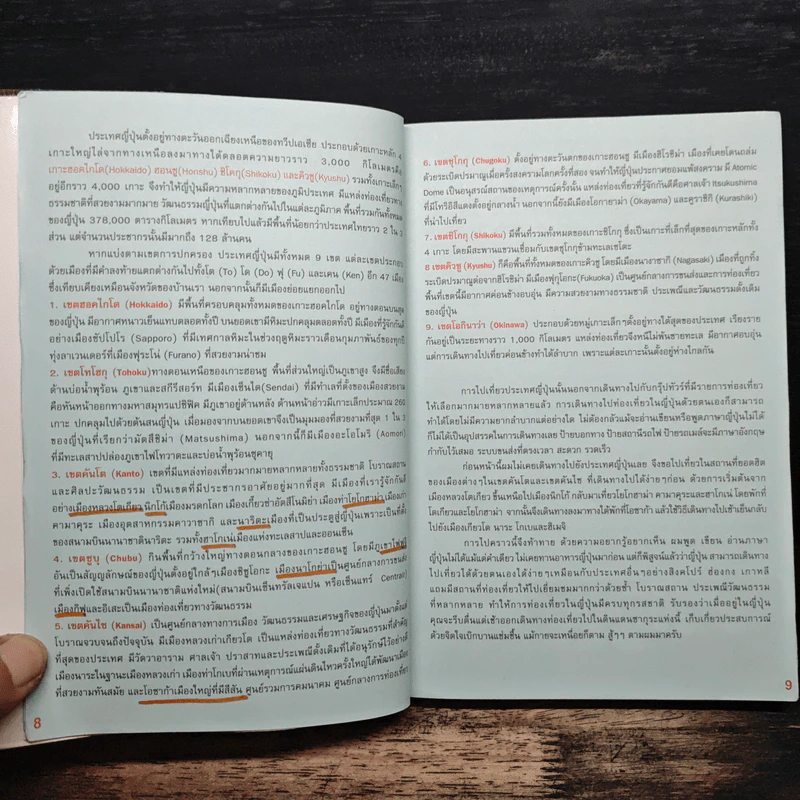 ประเทศญี่ปุ่นตั้งอยู่ทางตะวันออกเฉียงเหนือของทวีปเอเชีย ประกอบด้วยเกาะหลัก 4
เกาะใหญ่ไล่จากทางเหนือลงมาทางใต้ตลอดความยาวราว 3,000 กิโลเมตรคือ
เกาะฮอคไกโด(Hokkaido) ฮอนชู(Honshu) ชิโคกุ(Shikoku) และคิวชู(Kyushu) รวมทั้งเกาะเล็กๆ
อยู่อีกราว 4,000 เกาะ จึงทำให้ญี่ปุ่นมีความหลากหลายของภูมิประเทศ มีแหล่งท่องเที่ยวทาง
ธรรมชาติที่สวยงามมากมาย วัฒนธรรมญี่ปุ่นที่แตกต่างกันไปในแต่ละภูมิภาค พื้นที่รวมกันทั้งหมด
ของญี่ปุ่น 378,000 ตารางกิโลเมตร หากเทียบไปแล้วมีพื้นที่น้อยกว่าประเทศไทยราว 2 ใน
ส่วน แต่จำนวนประชากรนั้นมีมากถึง 128 ล้านคน
หากแบ่งตามเขตการปกครอง ประเทศญี่ปุ่นมีทั้งหมด 9 เขต แต่ละเขตประกอบ
ด้วยเมืองที่มีคำลงท้ายแตกต่างกันไปทั้งโต (To) โด (Do) ฟุ (Fu) และเคน (Ken) อีก 47 เมือง
ซึ่งเทียบเคียงเหมือนจังหวัดของบ้านเรา นอกจากนั้นก็มีเมืองย่อยแยกออกไป
1. เขตฮอคไกโด (Hokkaido) มีพื้นที่ครอบคลุมทั้งหมดของเกาะฮอคไกโด อยู่ทางตอนบนสุด
ของญี่ปุ่น มีอากาศหนาวเย็นแทบตลอดทั้งปี บนยอดเขามีหิมะปกคลุมตลอดทั้งปี มีเมืองที่รู้จักกันดี
อย่างเมืองซัปโปโร (Sapporo) ที่มีเทศกาลหิมะในช่วงฤดูหิมะราวเดือนกุมภาพันธ์ของทุกปี
ทุ่งลาเวนเดอร์ที่เมืองฟุระโน่ (Furano) ที่สวยงามน่าชม
2. เขตโทโฮกุ (Tohoku)ทางตอนเหนือของเกาะฮอนชู พื้นที่ส่วนใหญ่เป็นภูเขาสูง จึงมีชื่อเสียง
ด้านบ่อน้ำพุร้อน ภูเขาและสกีรีสอร์ท มีเมืองเซ็นได(Sendai) ที่มีทำเลที่ตั้งของเมืองสวยงาม
คือหันหน้าออกทางมหาสมุทรแปซิฟิค มีภูเขาอยู่ด้านหลัง ด้านหน้าอ่าวมีเกาะเล็กประมาณ 260
เกาะ ปกคลุมไปด้วยต้นสนญี่ปุ่น เมื่อมองจากบนยอดเขาจึงเป็นมุมมองที่สวยงามที่สุด 1 ใน
ของญี่ปุ่นที่เรียกว่ามัตสึชิม่า (Matsushima) นอกจากนี้ก็มีเมืองอะโอโมริ (Aomori)
ที่มีทะเลสาปปล่องภูเขาไฟโทวาดะและบ่อน้ำพุร้อนซุคายุ
3. เขตคันโต (Kanto) เขตที่มีแหล่งท่องเที่ยวมากมายหลากหลายทั้งธรรมชาติ โบราณสถาน
และศิลปะวัฒนธรรม เป็นเขตที่มีประชากรอาศัยอยู่มากที่สุด มีเมืองที่เรารู้จักกันดี
อย่างเมืองหลวงโตเกียว นิกโก้เมืองมรดกโลก เมืองเกี้ยวซ่าอัตสึโนมิย่า เมืองท่าโยโกฮาม่า เมืองเก่า
คามาคุระ เมืองอุตสาหกรรมคาวาซากิ และนาริตะเมืองที่เป็นประตูสู่ญี่ปุ่นเพราะเป็นที่ตั้ง
ของสนามบินนานาชาตินาริตะ รวมทั้งฮาโกเน่เมืองแห่งทะเลสาปและออนเซ็น
4. เขตชูบุ (Chubu) กินพื้นที่กว้างใหญ่ทางตอนกลางของเกาะฮอนชู โดยมีภูเขาไฟฟูจิ
อันเป็นสัญญลักษณ์ของญี่ปุ่นตั้งอยู่ใกล้ๆเมืองชิซูโอกะ เมืองนาโกย่าเป็นศูนย์กลางการขนส่ง
ที่เพิ่งเปิดใช้สนามบินนานาชาติแห่งใหม่(สนามบินเซ็นทรัลเจแปน หรือเซ็นแทร์ Central)
เมืองกิฟุและอิเสะเป็นเมืองท่องเที่ยวทางวัฒนธรรม
5. เขตคันไซ (Kansai) เป็นศูนย์กลางการเมือง วัฒนธรรมและเศรษฐกิจของญี่ปุ่นมาตั้งแต่
โบราณจวบจนถึงปัจจุบัน มีเมืองหลวงเก่าเกียวโต เป็นแหล่งท่องเที่ยวทางวัฒนธรรมที่สำคัญ
ที่สุดของประเทศ มีวัดวาอาราม ศาลเจ้า ปราสาทและประเพณีดั้งเดิมที่ได้อนุรักษ์ไว้อย่างดี
เมืองนาระในฐานะเมืองหลวงเก่า เมืองท่าโกเบที่ผ่านเหตุการณ์แผ่นดินไหวครั้งใหญ่ได้พัฒนาเมือง
ที่สวยงามทันสมัย และโอซาก้าเมืองใหญ่ที่มีสีสัน ศูนย์รวมการคมนาคม ศูนย์กลางการท่องเที่ยว
8
6. เขตชูโกกุ (Chugoku) ตั้งอยู่ทางตะวันตกของเกาะฮอนชู มีเมืองฮิโรชิม่า เมืองที่เคยโดนถล่ม
ด้วยระเบิดปรมาณูเมื่อครั้งสงครามโลกครั้งที่สอง จนทำให้ญี่ปุ่นประกาศยอมแพ้สงคราม มี Atomic
Dome เป็นอนุสรณ์สถานของเหตุการณ์ครั้งนั้น แหล่งท่องเที่ยวที่รู้จักกันดีคือศาลเจ้า Itsukushima
ที่มีโทริอิสีแดงตั้งอยู่กลางน้ำ นอกจากนี้ยังมีเมืองโอกายาม่า (Okayama) และคูราชิกิ (Kurashiki)
ที่น่าไปเที่ยว
7. เขตชิโกกุ (Shikoku) มีพื้นที่รวมทั้งหมดของเกาะชิโกกุ ซึ่งเป็นเกาะที่เล็กที่สุดของเกาะหลักทั้ง
4 เกาะ โดยมีสะพานแขวนเชื่อมกับเขตชูโกกุข้ามทะเลเซโตะ
8 เขตคิวชู (Kyushu) ก็คือพื้นที่ทั้งหมดของเกาะคิวชู โดยมีเมืองนางาซากิ (Nagasaki) เมืองที่ถูกทิ้ง
ระเบิดปรมาณูต่อจากฮิโรชิม่า มีเมืองฟุกุโอกะ(Fukuoka) เป็นศูนย์กลางการขนส่งและการท่องเที่ยว
พื้นที่เขตนี้มีอากาศค่อนข้างอบอุ่น มีความสวยงามทางธรรมชาติ ประเพณีและวัฒนธรรมดั้งเดิม
ของญี่ปุ่น
9. เขตโอกินาว่า (Okinawa) ประกอบด้วยหมู่เกาะเล็กๆตั้งอยู่ทางใต้สุดของประเทศ เรียงราย
กันอยู่เป็นระยะทางราว 1,000 กิโลเมตร แหล่งท่องเที่ยวจึงหนีไม่พ้นชายทะเล มีอากาศอบอุ่น
แต่การเดินทางไปเที่ยวค่อนข้างทำได้ลำบาก เพราะแต่ละเกาะนั้นตั้งอยู่ห่างไกลกัน
การไปเที่ยวประเทศญี่ปุ่นนั้นนอกจากเดินทางไปกับกรุ๊ปทัวร์ที่มีรายการท่องเที่ยว
ให้เลือกมากมายหลากหลายแล้ว การเดินทางไปท่องเที่ยวในญี่ปุ่นด้วยตนเองก็สามารถ
ทำได้โดยไม่มีความยากลำบากแต่อย่างใด ไม่ต้องกลัวแม้จะอ่านเขียนหรือพูดภาษาญี่ปุ่นไม่ได้
ก็ไม่ได้เป็นอุปสรรคในการเดินทางเลย ป้ายบอกทาง ป้ายสถานีรถไฟ ป้ายรถเมล์จะมีภาษาอังกฤษ
กำกับไว้เสมอ ระบบขนส่งที่ตรงเวลา สะดวก รวดเร็ว
ก่อนหน้านี้ผมไม่เคยเดินทางไปยังประเทศญี่ปุ่นเลย จึงขอไปเที่ยวในสถานที่ยอดฮิต
ของเมืองต่างๆในเขตคันโตและเขตคันไซ ที่เดินทางไปได้ง่ายๆก่อน ด้วยการเริ่มต้นจาก
เมืองหลวงโตเกียว ขึ้นเหนือไปเมืองนิกโก้ กลับมาเที่ยวโยโกฮาม่า คามาคุระและฮาโกเน่ โดยพักที่
โตเกียวและโยโกฮาม่า จากนั้นจึงเดินทางลงมาทางใต้พักที่โอซาก้า แล้วใช้วิธีเดินทางไปเช้าเย็นกลับ
ไปยังเมืองเกียวโต นาระ โกเบและฮิเมจิ
การไปคราวนี้จึงท้าทาย ด้วยความอยากรู้อยากเห็น ผมพูด เขียน อ่านภาษา
ญี่ปุ่นไม่ได้แม้แต่คำเดียว ไม่เคยทานอาหารญี่ปุ่นมาก่อน แต่ก็พิสูจน์แล้วว่าญี่ปุ่น สามารถเดินทาง
ไปเที่ยวได้ด้วยตนเองได้ง่ายๆเหมือนกับประเทศอื่นๆอย่างสิงคโปร์ ฮ่องกง เกาหลี
แถมมีสถานที่ท่องเที่ยวให้ไปเยี่ยมชมมากกว่าด้วยซ้ำ โบราณสถาน ประเพณีวัฒนธรรม
ที่หลากหลาย ทำให้การท่องเที่ยวในญี่ปุ่นมีครบทุกรสชาติ รับรองว่าเมื่ออยู่ในญี่ปุ่น
คุณจะรีบตื่นแต่เช้าออกเดินทางท่องเที่ยวไปในดินแดนซากุระแห่งนี้ เก็บเกี่ยวประสบการณ์
ด้วยจิตใจเบิกบานแช่มชื่น แม้กายจะเหนื่อยก็ตาม สู้ๆ ตามผมมาครับ
9